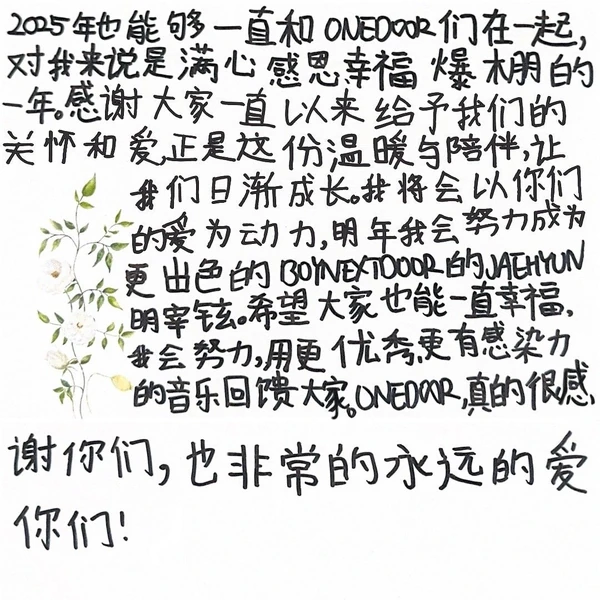 2025年也能够一直和ONEDOOR们在一起,
对我来说是满心感恩幸福爆棚的
一年。感谢大家一直以来给予我们的
关怀和爱,正是这份温暖与陪伴,让
我们日渐成长。我将会以你们
的爱为动力,明年我会努力成为
更出色的BOYNEXTDOOR的JAEHYUN
明宰铉。希望大家也能一直幸福,
我会努力,用更优秀,更有感染力
的音乐回馈大家。ONEDOOR,真的很感
谢你们,也非常的永远的爱
你们!